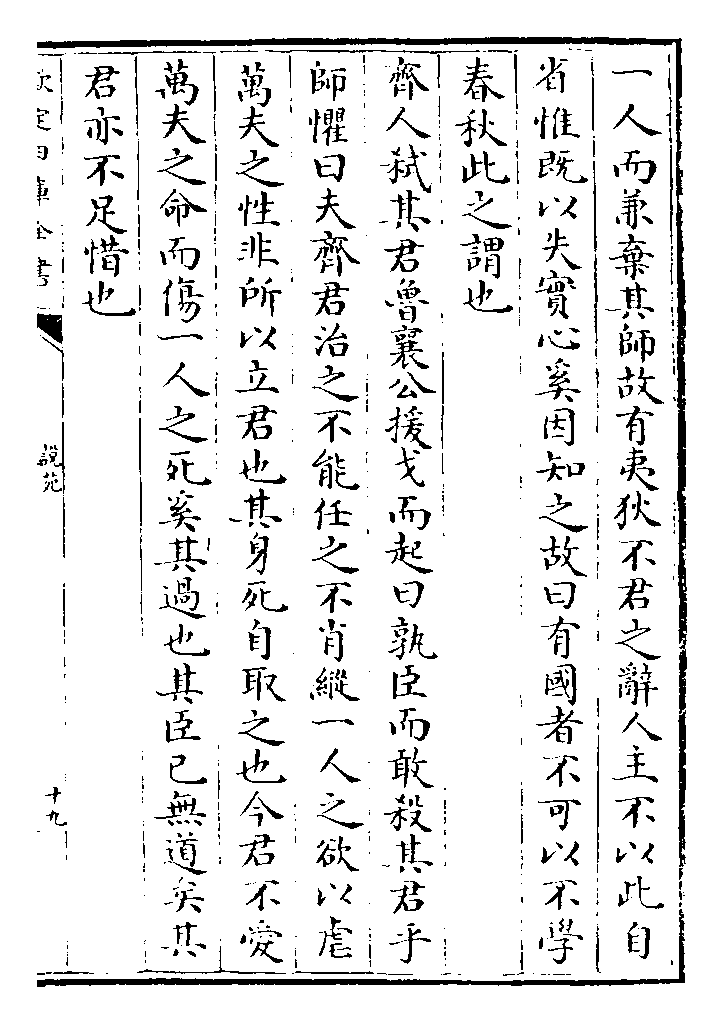 一人而兼棄其師故有夷狄不君之辭人主不以此自
省惟既以失實心奚因知之故曰有國者不可以不學
春秋此之謂也
齊人弑其君魯襄公援戈而起曰孰臣而敢殺其君乎
師懼曰夫齊君治之不能任之不肖縱一人之欲以虐
萬夫之性非所以立君也其身死自取之也今君不愛
萬夫之命而傷一人之死奚其過也其臣已無道矣其
君亦不足惜也
欽定四庫全書
說苑
十九